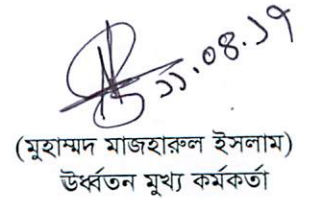 ১১.০৪.১৭
(মুহাম্মদ মাজহারুল ইসলাম)
উর্ধ্বতন মুখ্য কর্মকর্তা